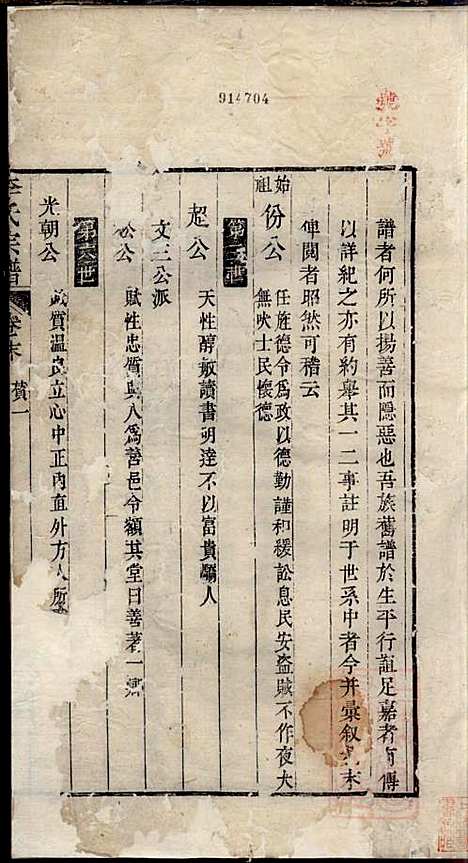 914704
譜者何所以揚善而隱惡也吾族舊譜於生平行誼足嘉者有傳
以詳紀之亦有約舉其一二事註明于世系中者今并彙叙末
俾閱者昭然可稽云
始祖 份公 任旌德令為政以德勤謹和緩訟息民安盜賊不作夜犬
無吠士民懷德
第二世
超公 天性醇敏讀書明達不以富貴驕人
文三公派
公 賦性忠質與人為善邑令額其堂曰善著一鄉
第六世
光朝公 質溫良立心中正內直外方人所
李氏宗譜 卷末 贊 一